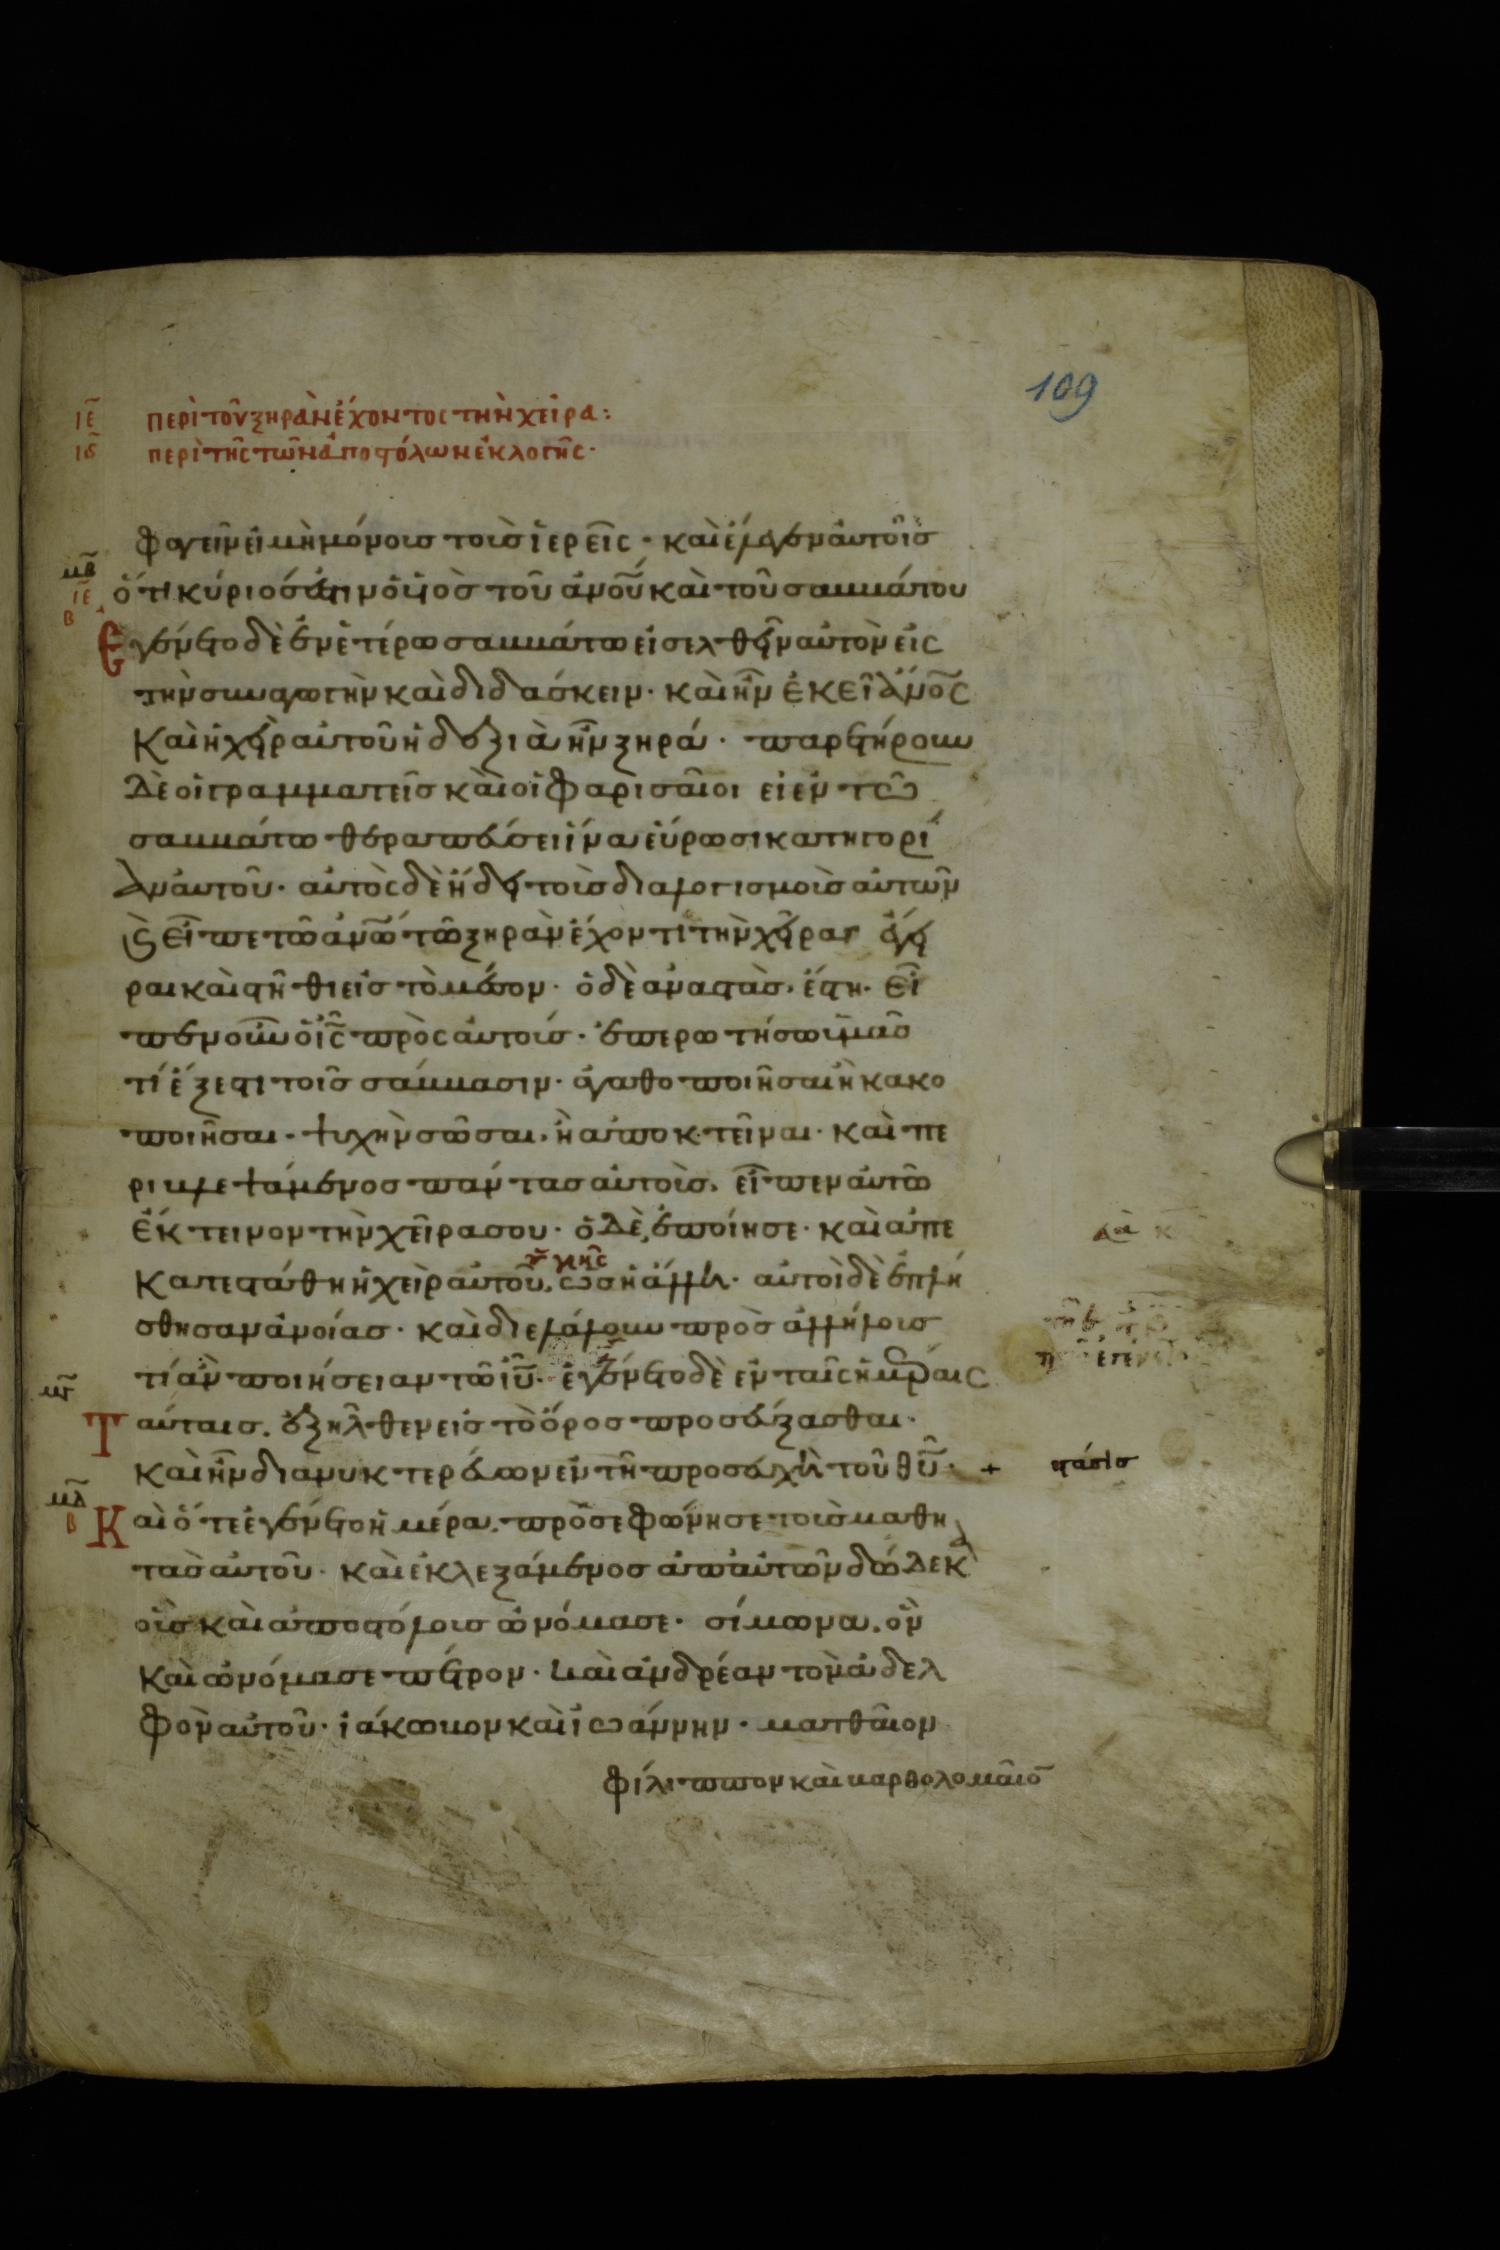 109
ιε περὶ τοῦ ξηρὰν ἔχοντος τὴν χεῖρα:
ιϛ περὶ τῆς τῶν ἀποστόλων ἐκλογῆς·
φαγεῖν εἰ μὴ μόνοις τοῖς ἱερεῖς· καὶ ἔλεγεν αὐτοῖς
μβ
ιε
β
ὅτι κύριός ἐστιν ὁ υἱὸς τοῦ ἀνου καὶ τοῦ σαββάτου
Ἐγένετο δὲ ἐν ἑτέρω σαββάτω εἰσελθεῖν αὐτὸν εἰς
τὴν συναγωγὴν καὶ διδάσκειν· καὶ ἦν ἐκεῖ ἄνος
καὶ ἡ χεὶρ αὐτοῦ ἡ δεξιὰ ἦν ξηρά· παρετήρουν
δὲ οἱ γραμματεῖς καὶ οἱ φαρισαῖοι εἰ ἐν τῶ
σαββάτω θεραπεύσει ἵνα εὕρωσι κατηγορί
αν αὐτοῦ· αὐτὸς δὲ ἤδει τοὺς διαλογισμοὺς αὐτῶν
κεἶπε τῶ ἀνω τῶ ξηρὰν ἔχοντι τὴν χεῖρα· ἔγει
ραι καὶ στῆθι εἰς τὸ μέσον· ὁ δὲ ἀναστὰς, ἔστη· εἶ
πεν οὖν ὁ ις πρὸς αὐτούς· ἐπερωτήσω ὑμᾶς
τί ἔξεστι τοῖς σάββασιν· ἀγαθοποιῆσαι ἢ κακο
ποιῆσαι· ψυχὴν σῶσαι, ἢ ἀποκτεῖναι· καὶ πε
ριβλεψάμενος πάντας αὐτοὺς, εἶπεν αὐτῶ
ἔκτεινον τὴν χεῖρα σου· ὁ δὲ, ἐποίησε· καὶ ἀπε
ὑγιὴς
κατεστάθη ἡ χεὶρ αὐτοῦ, ὡς ἡ ἄλλη· αὐτοὶ δὲ ἐπλή
σθησαν ἀνοίας· καὶ διελάλουν πρὸς ἀλλήλους
τί ἂν ποιήσειαν τῶ ιυ· ἐγένετο δὲ ἐν ταῖς ἡμέραις
μγ
ταύταις. ἐξῆλθεν εἰς τὸ ὄρος προσεύξασθαι·
καὶ ἦν διανυκτερεύων ἐν τῆ προσευχῆ τοῦ θυ· +
μδ
β
Καὶ ὅτε ἐγένετο ἡμέρα, προσεφώνησε τοὺς μαθη
τὰς αὐτοῦ· καὶ ἐκλεξάμενος ἀπ αὐτῶν δώδεκα
οὓς καὶ ἀποστόλους ὠνόμασε· σίμωνα, ὃν
καὶ ὠνόμασε πέτρον· καὶ ἀνδρέαν τὸν ἀδελ
φὸν αὐτοῦ· ἰάκωβον καὶ ἰωάννην· ματθαῖον
φίλιππον καὶ βαρθολομαῖον